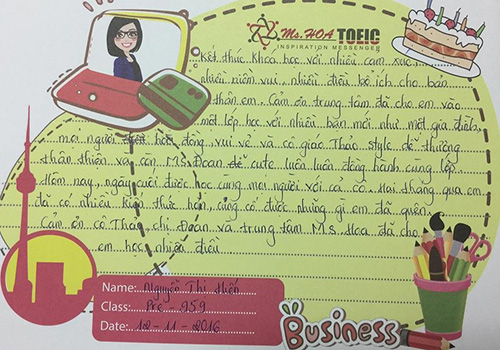 Ms. HOA TOEIC
INSPIRATION MESSENGER
Kết thúc khóa học với nhiều cảm xúc,
nhiều niềm vui, nhiều điều bổ ích cho bản
thân em. Cảm ơn trung tâm đã cho em vào
một lớp học với nhiều bạn mới như một gia đình,
mọi người hoạt động vui vẻ và cô giáo Thảo style dễ thương
thân thiện và còn Ms. Đoan cute luôn luôn đồng hành cùng lớp.
Hôm nay, ngày cuối được học cùng mọi người với cả cô. Hai tháng qua em
đã có nhiều kiến thức hơn, củng cố được những gì em đã quên.
Cảm ơn cô Thảo, chị Đoan và trung tâm Ms Hoa đã cho
em học nhiều điều
Name: Nguyễn Thị Hiền
Class: Pre 959
Date: 12-11-2016
Business